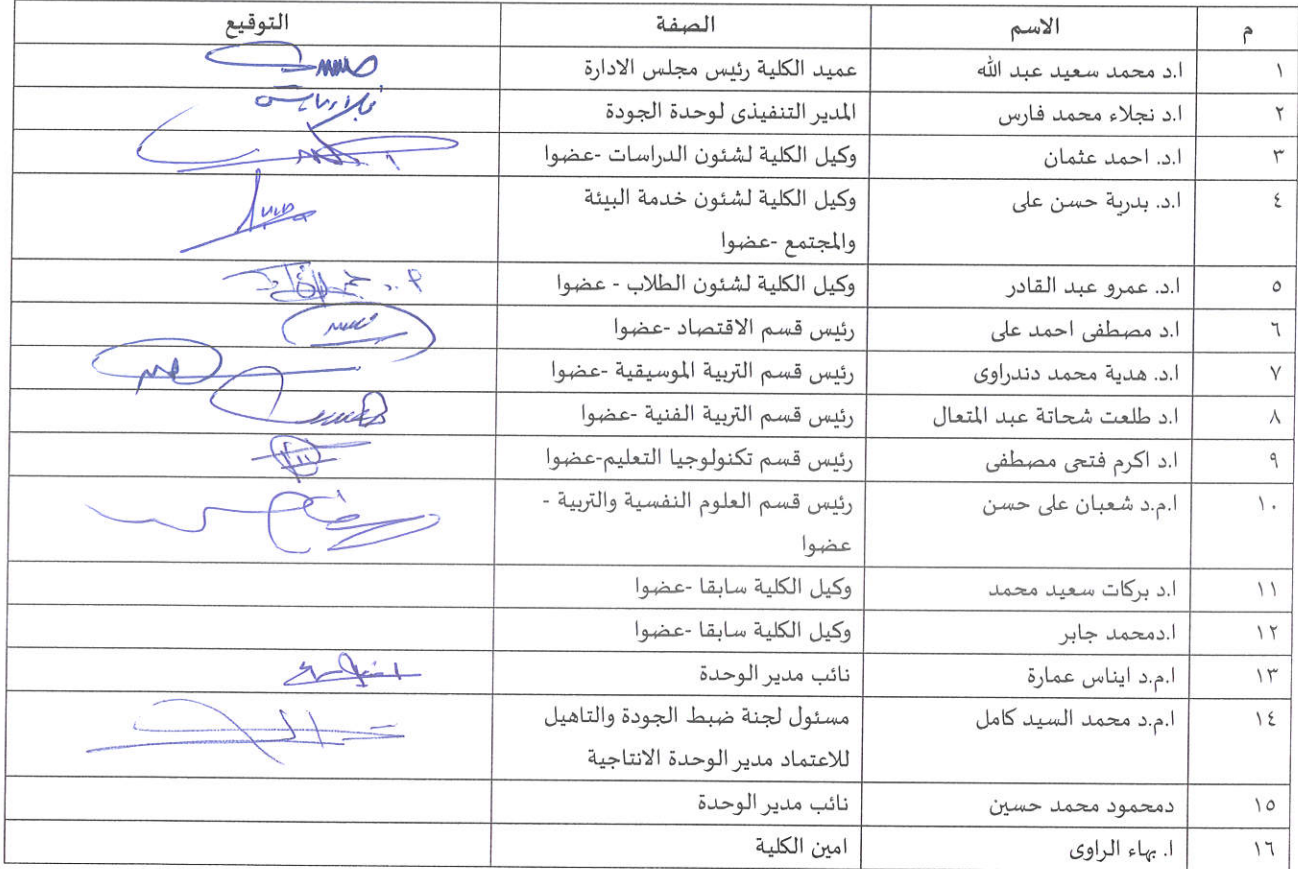 م الاسم الصفة التوقيع
١ ا.د محمد سعيد عبد الله عميد الكلية رئيس مجلس الادارة
٢ ا.د نجلاء محمد فارس المدير التنفيذى لوحدة الجودة
٣ ا.د. احمد عثمان وكيل الكلية لشئون الدراسات -عضوا
٤ ا.د. بدرية حسن على وكيل الكلية لشئون خدمة البيئة
والمجتمع -عضوا
٥ ا.د. عمرو عبد القادر وكيل الكلية لشئون الطلاب - عضوا
٦ ا.د مصطفى احمد على رئيس قسم الاقتصاد -عضوا
٧ ا.د. هدية محمد دندراوى رئيس قسم التربية الموسيقية -عضوا
٨ ا.د طلعت شحاتة عبد المتعال رئيس قسم التربية الفنية -عضوا
٩ ا.د اكرم فتحى مصطفى رئيس قسم تكنولوجيا التعليم-عضوا
١٠ ا.م.د شعبان على حسن رئيس قسم العلوم النفسية والتربية -
عضوا
١١ ا.د بركات سعيد محمد وكيل الكلية سابقا -عضوا
١٢ ا.دمحمد جابر وكيل الكلية سابقا -عضوا
١٣ ا.م.د ايناس عمارة نائب مدير الوحدة
١٤ ا.م.د محمد السيد كامل مسئول لجنة ضبط الجودة والتاهيل
للاعتماد مدير الوحدة الانتاجية
١٥ دمحمود محمد حسين نائب مدير الوحدة
١٦ ا. بهاء الراوى امين الكلية